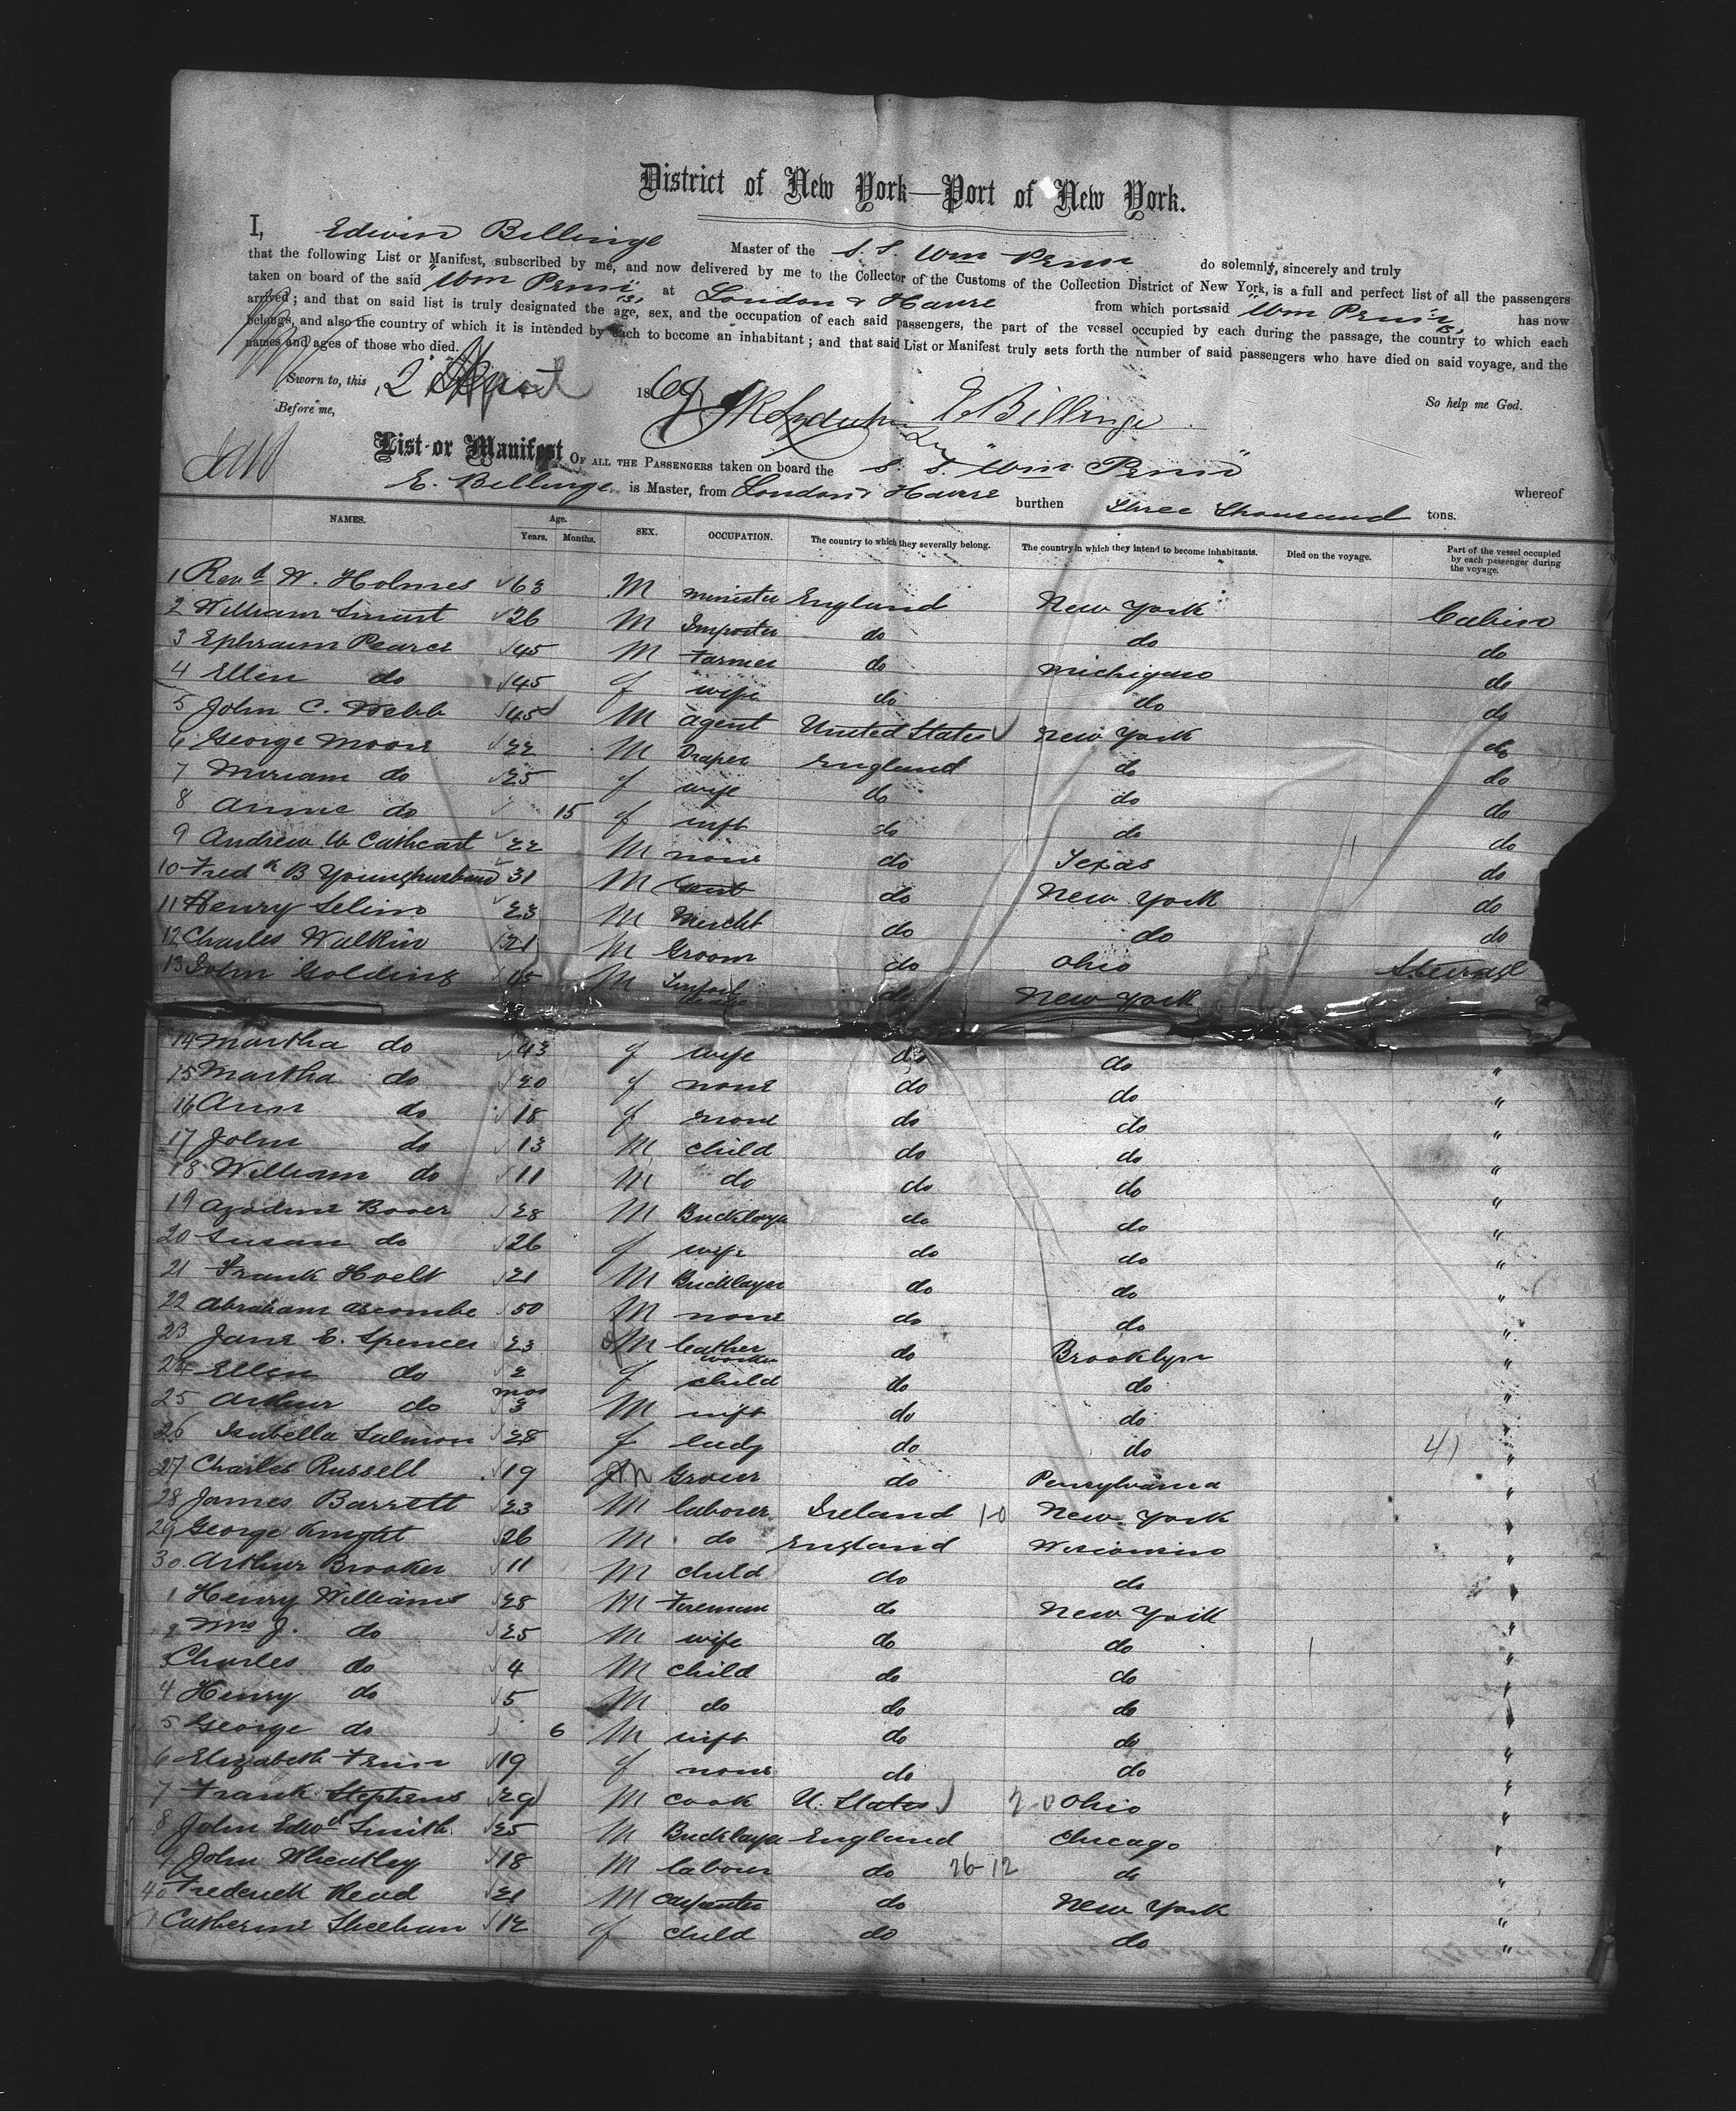 District of New York—Port of New York.
I, Edwin Billinge Master of the S.S. Wm Penn do solemnly, sincerely and truly
that the following List or Manifest, subscribed by me, and now delivered by me to the Collector of the Customs of the Collection District of New York, is a full and perfect list of all the passengers
taken on board of the said "Wm Penn" at London & Havre from which port said "Wm Penn" has now
arrived; and that on said list is truly designated the age, sex, and the occupation of each said passengers, the part of the vessel occupied by each during the passage, the country to which each
belongs, and also the country of which it is intended by each to become an inhabitant; and that said List or Manifest truly sets forth the number of said passengers who have died on said voyage, and the
names and ages of those who died.
Sworn to, this 2 April 1869 E. Billinge So help me God.
Before me,
List or Manifest OF ALL THE PASSENGERS taken on board the S. S. "Wm Penn" whereof
E. Billinge is Master, from London & Havre burthen Three Thousand tons.
NAMES. Age. Years. Months. SEX. OCCUPATION. The country to which they severally belong. The country in which they intend to become inhabitants. Died on the voyage. Part of the vessel occupied by each passenger during the voyage.
1 Revd W. Holmes 63 M minister England New York Cabin
2 William Smart 26 M Importer do do do
3 Ephraim Pearce 45 M Farmer do Michigan do
4 Ellen do 45 f wife do do do
5 John C. Webb 45 M agent United States New York do
6 George Moore 22 M Draper England do do
7 Miriam do 25 f wife do do do
8 Annie do 15 f inft do do do
9 Andrew W Cathcart 22 M none do Texas do
10 Fredk B Younghusband 31 M do New York do
11 Henry Selim 23 M Mercht do do do
12 Charles Walkin 21 M Groom do Ohio Steerage
13 John Golding 45 M do New York
14 Martha do 43 f wife do do "
15 Martha do 20 f none do do "
16 Ann do 18 f none do do "
17 John do 13 M child do do "
18 William do 11 M do do do "
19 Booer 28 M Bricklayer do do "
20 Susan do 26 f wife do do "
21 Frank Hoelt 21 M Bricklayer do do "
22 Abraham Ascombe 50 M none do do "
23 Jane E. Spencer 23 M leather worker do Brooklyn "
24 Ellen do 2 f child do do "
25 Arthur do mos 3 M inft do do "
26 Isabella Salmon 28 f lady do do 41 "
27 Charles Russell 19 M Grocer do Pensylvania "
28 James Barrett 23 M laborer Ireland 1-0 New York "
29 George Knight 26 M do England Wisconsin "
30 Arthur Brooker 11 M child do do "
1 Henry Williams 28 M Fireman do New York "
2 Mrs J. do 25 M wife do do "
3 Charles do 4 M child do do "
4 Henry do 5 M do do do "
5 George do 6 M inft do do "
6 Elizabeth Fenn 19 f none do do "
7 Frank Stephens 29 M cook U. States 2-0 Ohio "
8 John Edwd Smith 25 M Bricklayer England Chicago "
9 John Wheatley 18 M labour do 26-12 do "
40 Frederick Read 21 M Carpenter do New York "
1 Catherine Sheehan 12 f child do do "